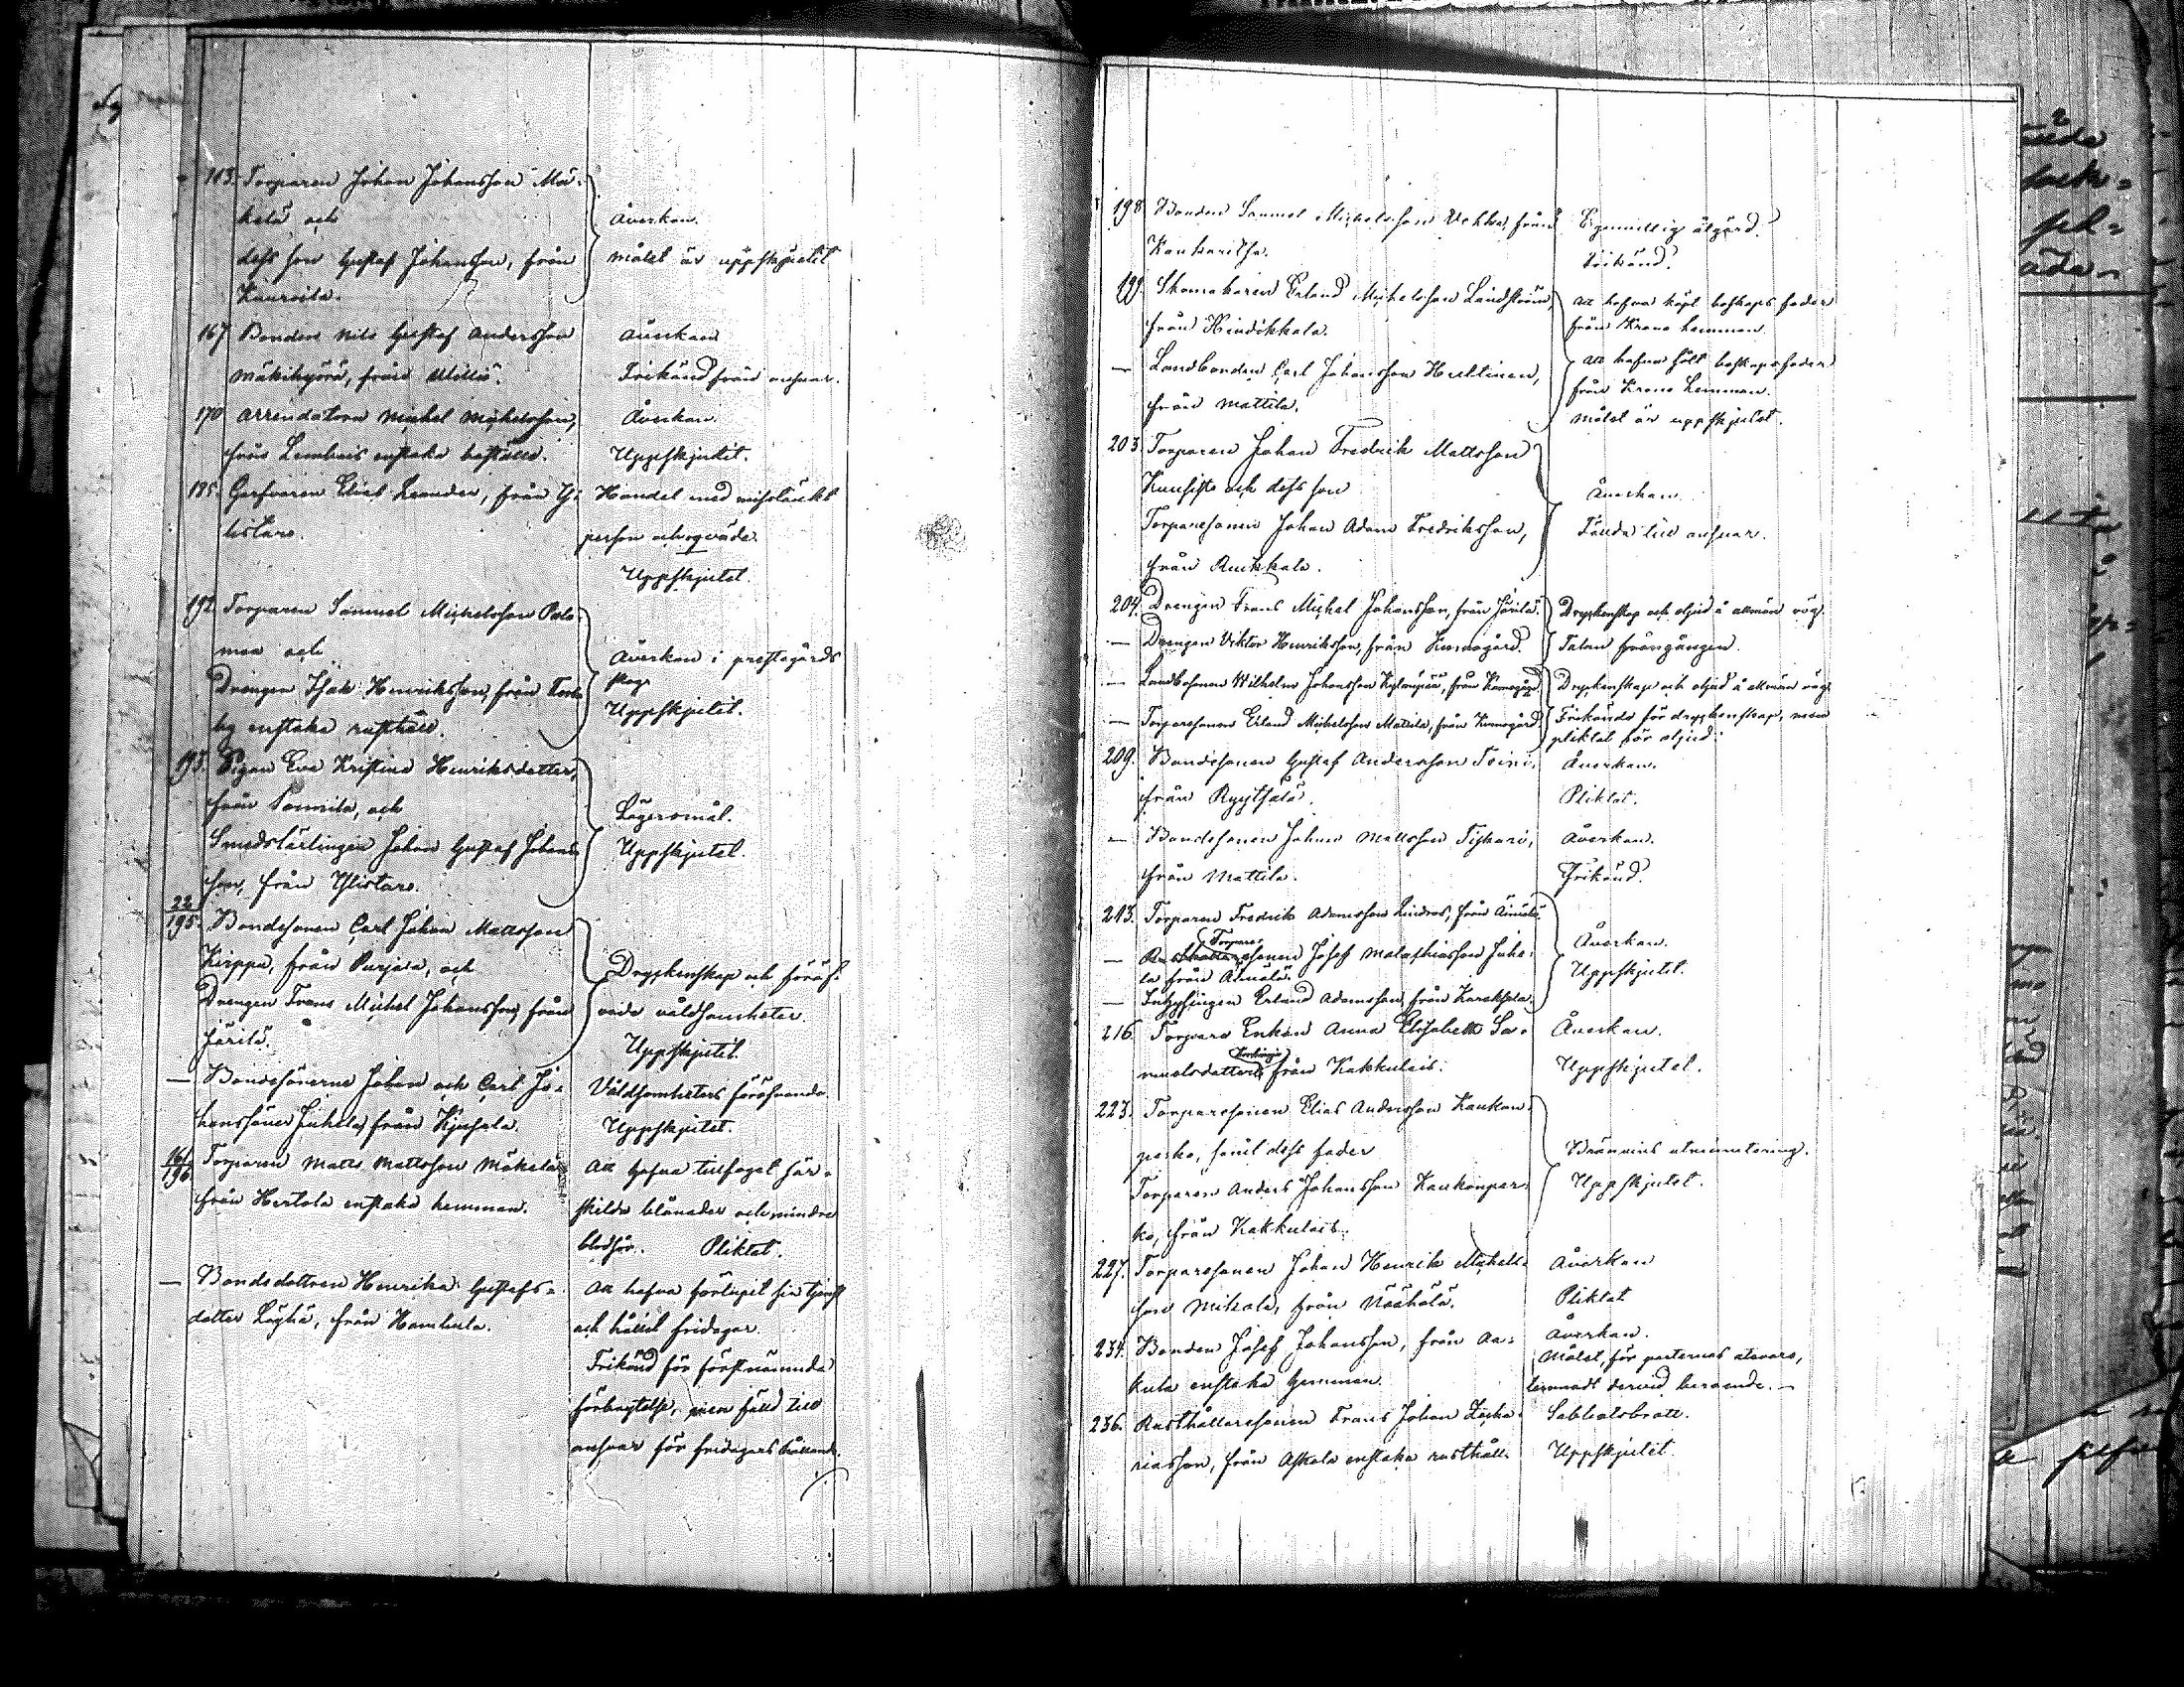 163. Torparen Johan Johansson Mä-
kelä och
dess son Gustaf Johansson, från
Kauroila.
Åverkan.
målet är uppskjutet
167 Bonden Nils Gustaf Andersson
Mäkikyörä, från
Åverkan
Frikänd från ansvar.
170 Arrendatorn Michel Michelsson,
från Lembois enstaka
Åverkan.
Uppskjutet.
185. Garfvaren Elias Leander, från Y-
listaro.
Handel med misstänkt
person och oqväde.
Uppskjutet.
192. Torparen Samuel Michelsson Palo-
maa och
Drengen Isak Henriksson, från
by enstaka rusthåll.
Åverkan i prestegårds
skog.
Uppskjutet.
193. Pigan Eva Kristina Henriksdotter,
från Tommila, och
Smedslärlingen Johan Gustaf Johans-
son, från Ylistaro.
Lägersmål.
Uppskjutet.
22
195. Bondesonen Carl Johan Mattsson
Kirppu, från Purjala, och
Drengen Frans Michel Johansson, från
Järilä.
Dryckenskap och föröf-
vade våldsamheter.
Uppskjutet.
— Bondesönerne Johan och Carl Jo-
hanssöner Juhela, från
Våldsamheters föröfvande.
Uppskjutet.
161
196 Torparen Matts Mattsson Mäkelä
från Hertola enstaka hemman.
Att hafva tillfogat sär-
skilde blånader och mindre
blodsår. Pliktat.
— Bondedottren Henrika Gustafs-
dotter Löyhä, från Hambula.
Att hafva förlupit sin tjenst
och hållit fridagar.
Frikänd för förstnämnda
förbrytelse, men fälld till
ansvar för fridagars hållande.
198 Bonden Samuel Michelsson Uckka, från
Kankaritsa.
Egenvillig åtgärd.
Frikänd.
199. Skomakaren Erland Michelsson Landström,
från Hindikkala.
Att hafva köpt boskaps foder
från Krono hemman.
— Landbonden Carl Johansson Hellinen,
från Mattila.
Att hafva sålt boskapsfoder
från Krono hemman.
målet är uppskjutet.
203. Torparen Johan Fredrik Mattsson
Kunsisto och dess son
Torparesonen Johan Adam Fredriksson,
från Ruikkala.
Åverkan.
Fällde till ansvar.
204. Drengen Frans Michel Johansson, från Järilä.
— Drengen Viktor Henriksson, från Kumogård.
Dryckenskap och oljud å allmän väg.
Talan frångången.
— Landbosonen Wilhelm Johansson Kylänpää, från Kumogård
— Torparesonen Erland Michelsson Mattila, från Kumogård
Dryckenskap och oljud å allmän väg.
Frikände för dryckenskap, men
pliktat för oljud.
209. Bondesonen Gustaf Andersson Toini,
från Ryytsälä.
Åverkan.
Pliktat.
— Bondesonen Johan Mattsson Tiskari,
från Mattila.
Åverkan.
Frikänd.
213. Torparen Fredrik Adamsson Lindros, från Äimälä
Torpare
— sonen Josef Malachiasson Juho-
la från Äimälä.
— Inhysingen Erland Adamsson, från Kareksela.
Åverkan.
Uppskjutet.
216. Torpare Enkan Anna Elisabeth Sa-
muelsdotter från Kakkulais.
Åverkan.
Uppskjutet.
223. Torparesonen Elias Andersson Kaukon-
perko, samt dess fader
Torparen Anders Johansson Kaukonper-
ko, från Kakkulais.
Bränvins utminutering.
Uppskjutet.
227. Torparesonen Johan Henrik Michels-
son Mikola, från Vääkälä.
Åverkan
Pliktat
234. Bonden Josef Johansson, från Aa-
kula enstaka hemman.
Åverkan.
Målet, för parternas utevaro,
lemnadt dervid beroende. —
236. Rusthållaresonen Frans Johan Zacha-
riasson, från Askola enstaka rusthåll.
Sabbatsbrott.
Uppskjutet